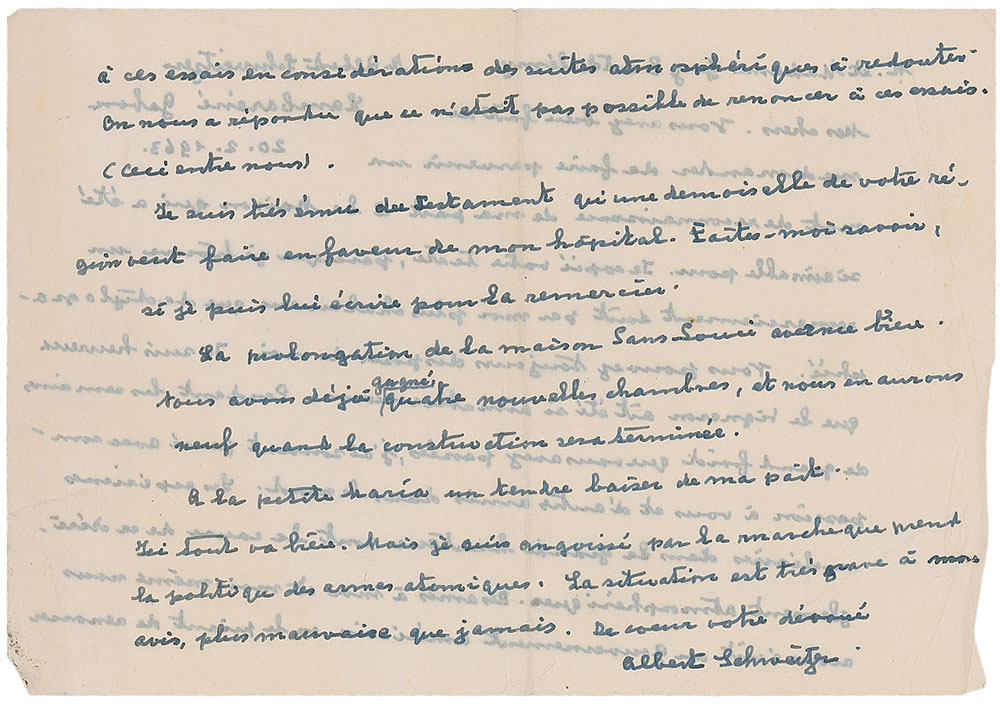 à ces essais en considérations des suites atmosphériques à redouter.
On nous a répondu que ce n'était pas possible de renoncer à ces essais.
(ceci entre nous).
Je suis très ému du testament qu'une demoiselle de votre ré-
gion veut faire en faveur de mon hôpital. Faites-moi savoir,
si je puis lui écrire pour la remercier.
La prolongation de la maison Sans-Souci avance bien.
Nous avons déjà gagné quatre nouvelles chambres, et nous en aurons
neuf quand la construction sera terminée.
A la petite Maria un tendre baiser de ma part.
Ici tout va bien. Mais je suis angoissé par la marche que prend
la politique des armes atomiques. La situation est très grave à mon
avis, plus mauvaise que jamais. De coeur votre dévoué
Albert Schweitzer